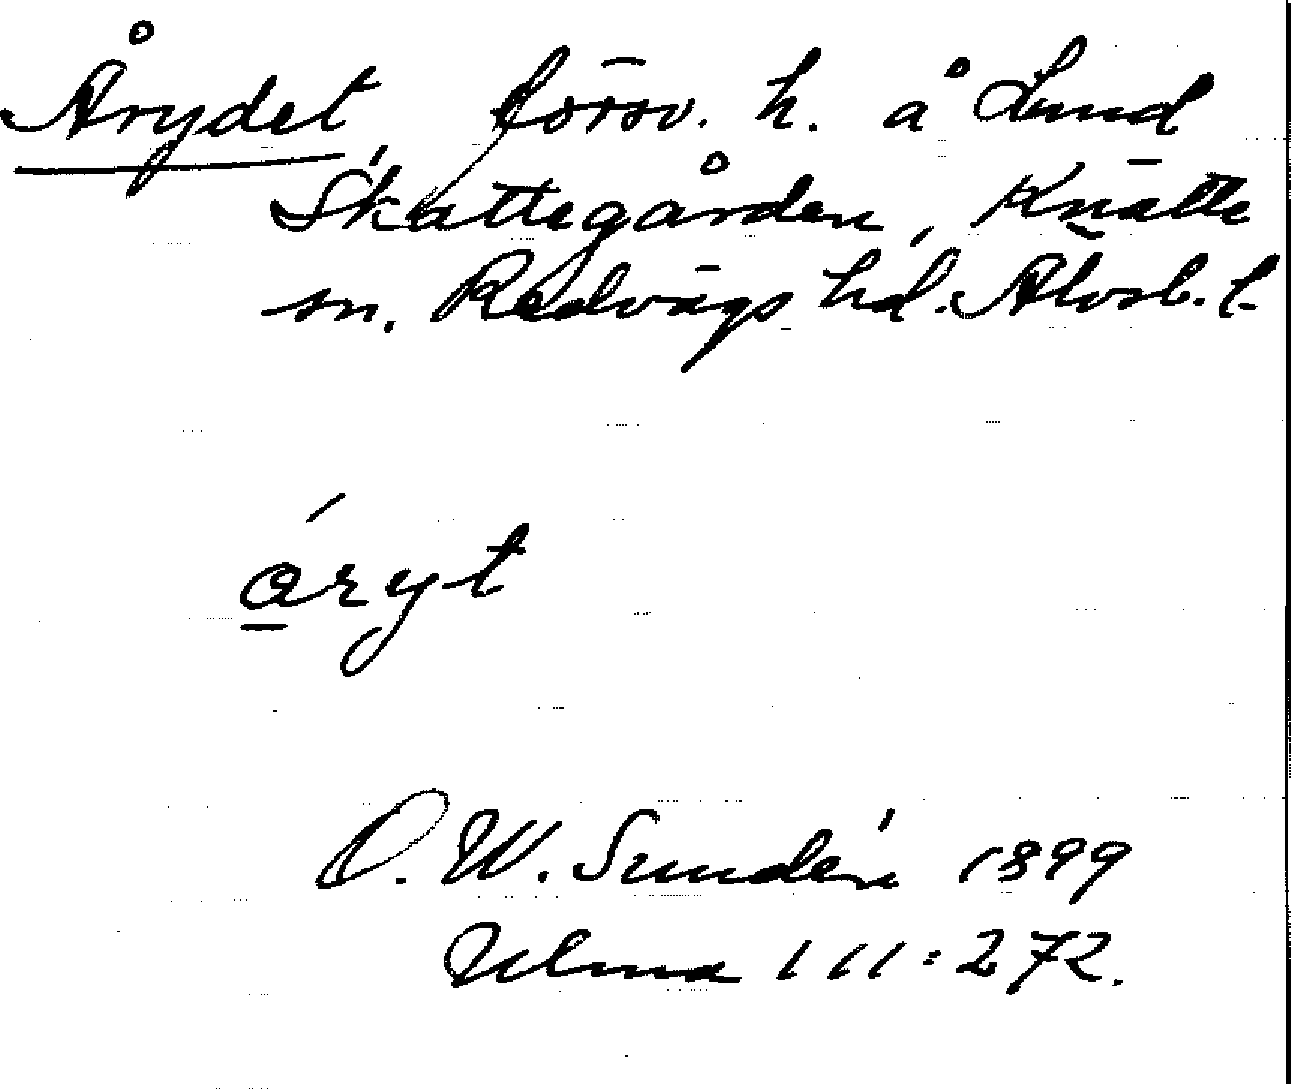 Årydet, försv. h. å Lund
Skattegården, Knätte
sn. Redvägs hd. Älvsb. l.
åryt
D. W. Sundén 1899
Ulma 111:272.